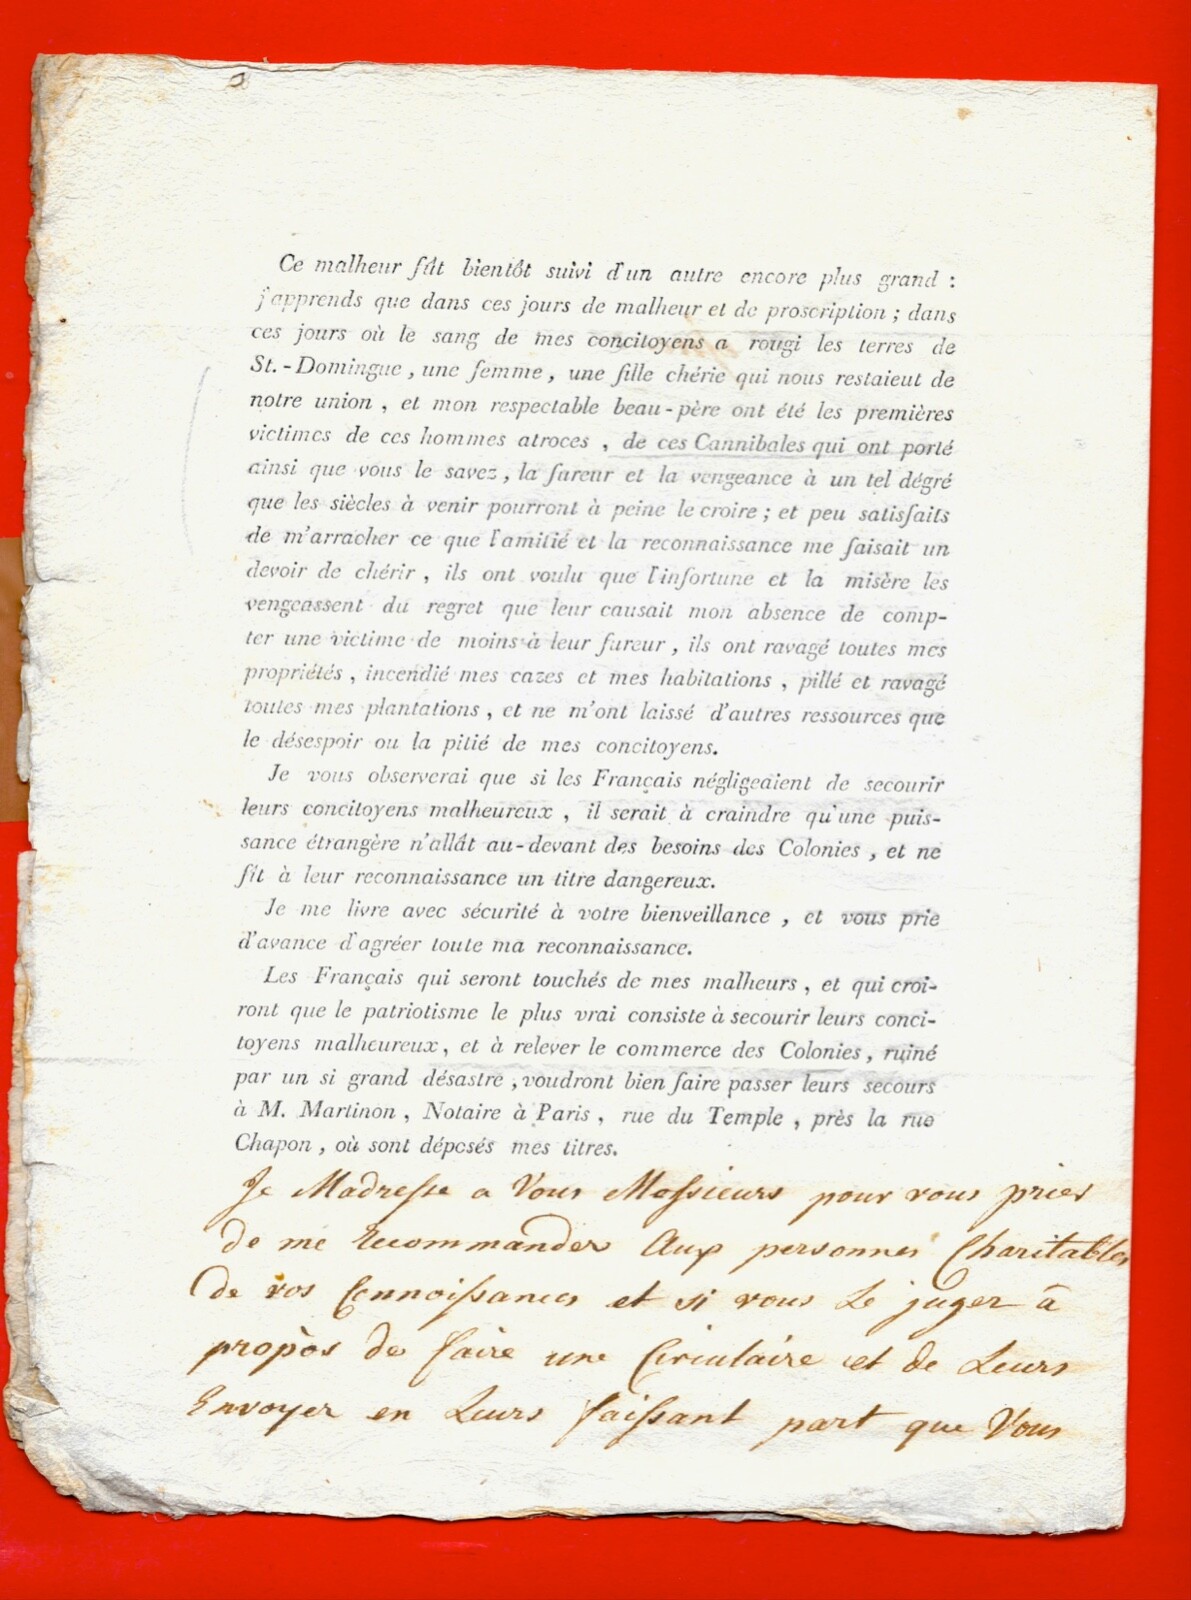 Ce malheur fût bientôt suivi d'un autre encore plus grand :
j'apprends que dans ces jours de malheur et de proscription ; dans
ces jours où le sang de mes concitoyens a rougi les terres de
St.-Domingue, une femme, une fille chérie qui nous restaieut de
notre union, et mon respectable beau-père ont été les premières
victimes de ces hommes atroces, de ces Cannibales qui ont porté
ainsi que vous le savez, la fureur et la vengeance à un tel dégré
que les siècles à venir pourront à peine le croire ; et peu satisfaits
de m'arracher ce que l'amitié et la reconnaissance me faisait un
devoir de chérir, ils ont voulu que l'infortune et la misère les
vengeassent du regret que leur causait mon absence de comp-
ter une victime de moins à leur fureur, ils ont ravagé toutes mes
propriétés, incendié mes cazes et mes habitations, pillé et ravagé
toutes mes plantations, et ne m'ont laissé d'autres ressources que
le désespoir ou la pitié de mes concitoyens.
Je vous observerai que si les Français négligeaient de secourir
leurs concitoyens malheureux, il serait à craindre qu'une puis-
sance étrangère n'allât au-devant des besoins des Colonies, et ne
fît à leur reconnaissance un titre dangereux.
Je me livre avec sécurité à votre bienveillance, et vous prie
d'avance d'agréer toute ma reconnaissance.
Les Français qui seront touchés de mes malheurs, et qui croi-
ront que le patriotisme le plus vrai consiste à secourir leurs conci-
toyens malheureux, et à relever le commerce des Colonies, ruiné
par un si grand désastre, voudront bien faire passer leurs secours
à M. Martinon, Notaire à Paris, rue du Temple, près la rue
Chapon, où sont déposés mes titres.
Je Madresse a Vous Messieurs pour vous prier
de me Recommander Aux personnes Charitables
de vos Connoissances et si vous Le juger à
propòs de faire une Circulaire et de Leurs
Envoyer en Leurs faissant part que Vous